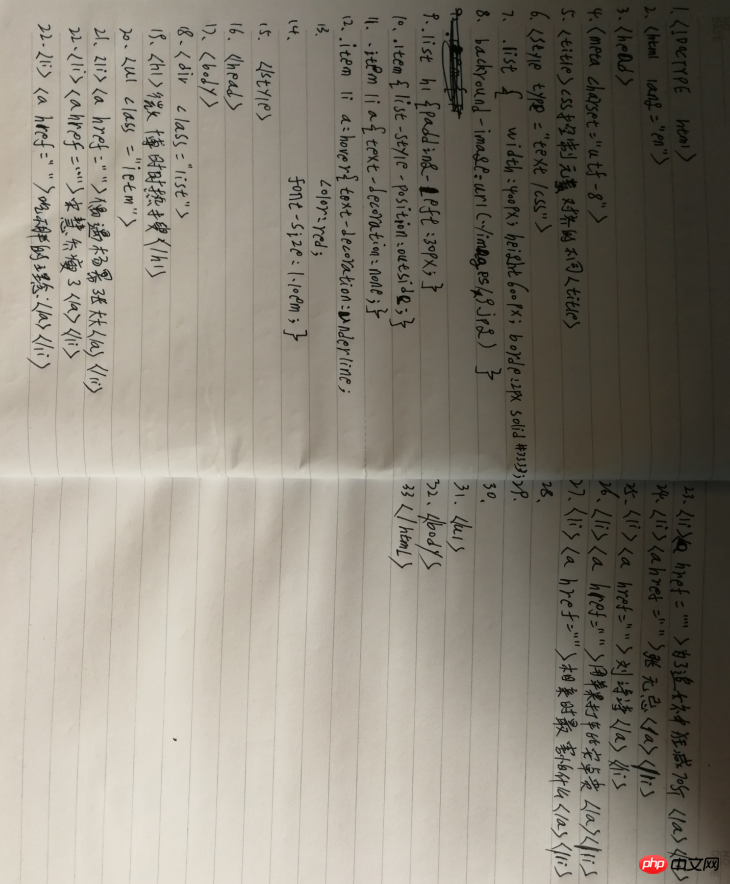 1. <!DOCTYPE html>
2. <html lang="en">
3. <head>
4. <meta charset="utf-8">
5. <title>css控制元素对齐的不同<title>
6. <style type="text/css">
7. .list { width:400px; height600px; borde:2px solid #333;
8. background-image:url(~/images/9.jpg) }
9. .list h1 {padding-left:30px;}
10. .item{list-style-position:outside;}
11. .item li a{text-decoration:none;}
12. .item li a=hover{text-decoration:underline;
13. color:red;
14. font-size=1.10em;}
15. <style>
16. <head>
17. <body>
18. <div class="list">
19. <h1>微博时时热搜</h1>
20. <ul class="ietm">
21. <li><a href="">偶遇杨幂</a></li>
22. <li><a href="">宋慧乔瘦了</a></li>
22. <li><a href=""></a></li>
23. <li><a href="">为了追女神狂减70斤</a></li>
24. <li><a href="">张无忌</a></li>
25. <li><a href="">刘诗诗</a></li>
26. <li><a href="">用苹果打车比安卓贵</a></li>
27. <li><a href="">相亲时最害怕什么</a></li>
28.
29.
30.
31. </ul>
32. </body>
33 </html>
php中文网